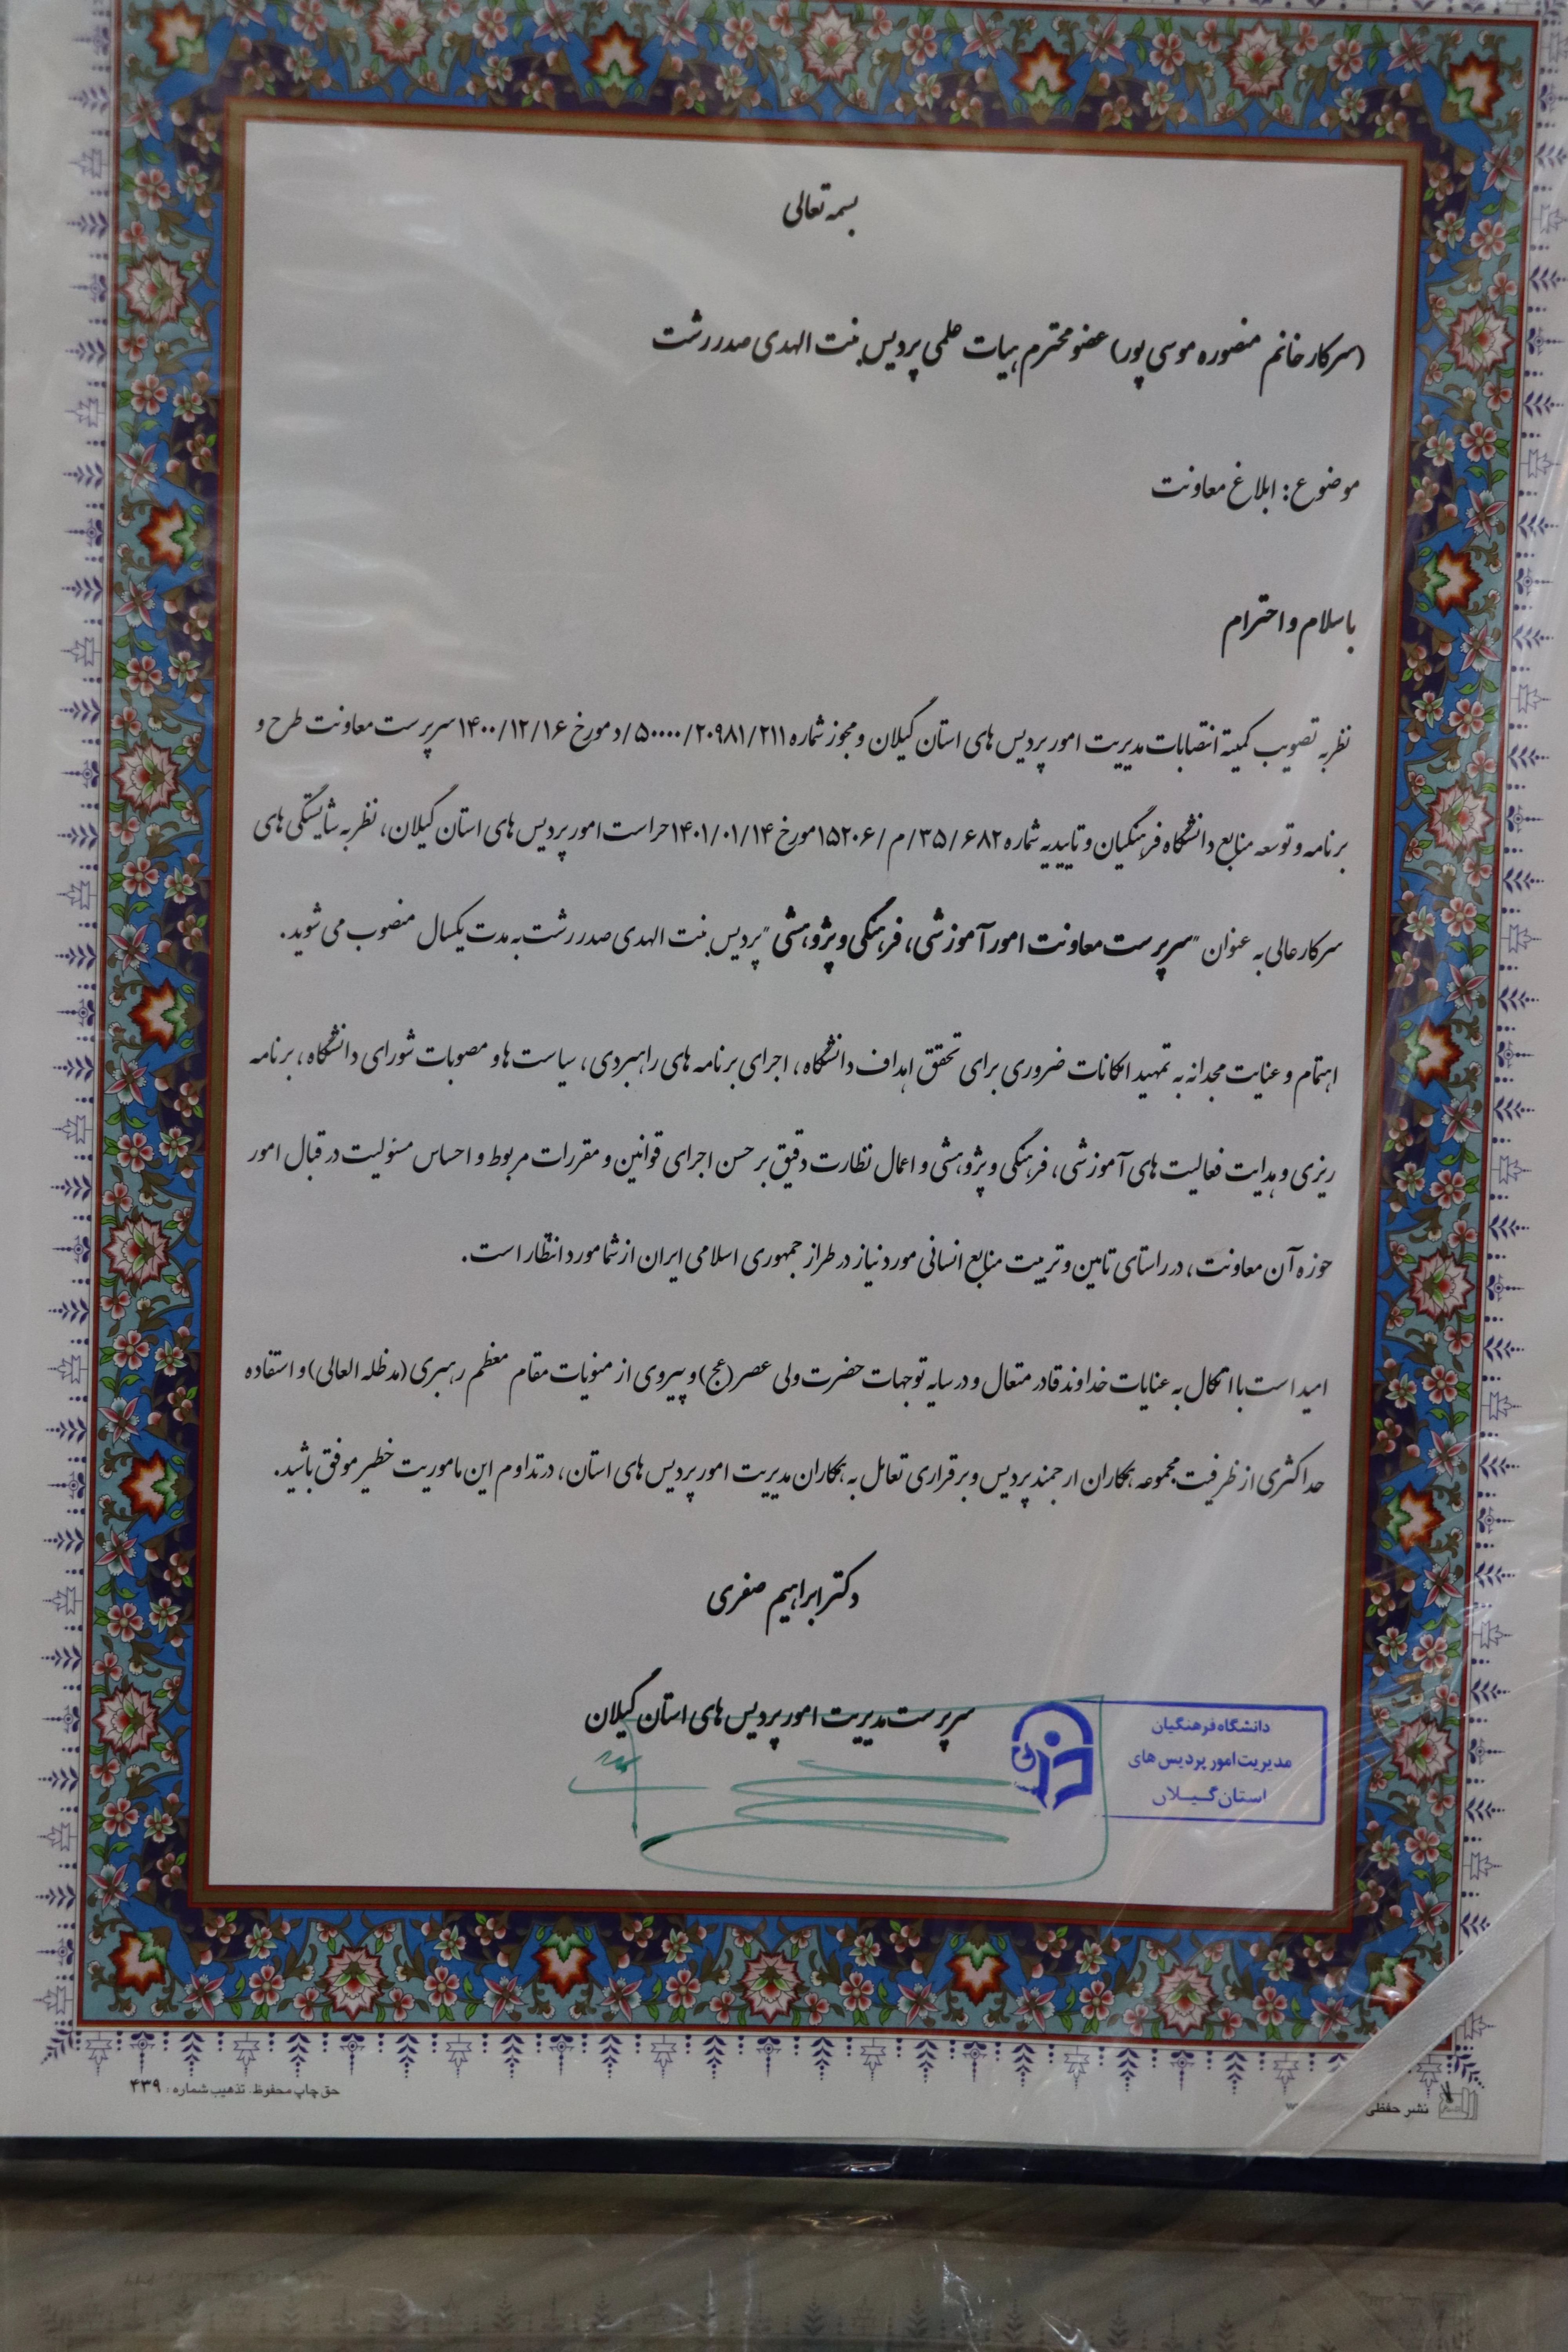 بسمه تعالی
(سرکار خانم منصوره موسی پور) عضو محترم هیات علمی پردیس بنت الهدی صدر رشت
موضوع: ابلاغ معاونت
با سلام و احترام
نظر به تصویب کمیته انتصابات مدیریت امور پردیس های استان گیلان و مجوز شماره ۵۰۰۰۰/۲۰۹۸۱/۲۱۱/د مورخ ۱۴۰۰/۱۲/۱۶ سرپرست معاونت طرح و
برنامه و توسعه منابع دانشگاه فرهنگیان و تاییدیه شماره ۱۵۲۰۶/م/۳۵/۶۸۲ مورخ ۱۴۰۱/۰۱/۱۴ حراست امور پردیس های استان گیلان، نظر به شایستگی های
سرکار عالی به عنوان "سرپرست معاونت امور آموزشی، فرهنگی و پژوهشی" پردیس بنت الهدی صدر رشت به مدت یکسال منصوب می شوید.
اهتمام و عنایت مجدانه به تمهید امکانات ضروری برای تحقق اهداف دانشگاه، اجرای برنامه های راهبردی، سیاست ها و مصوبات شورای دانشگاه، برنامه
ریزی و هدایت فعالیت های آموزشی، فرهنگی و پژوهشی و اعمال نظارت دقیق بر حسن اجرای قوانین و مقررات مربوط و احساس مسئولیت در قبال امور
حوزه آن معاونت، در راستای تامین و تربیت منابع انسانی مورد نیاز در طراز جمهوری اسلامی ایران از شما مورد انتظار است.
امید است با اتکال به عنایات خداوند قادر متعال و در سایه توجهات حضرت ولی عصر (عج) و پیروی از منویات مقام معظم رهبری (مدظله العالی) و استفاده
حداکثری از ظرفیت مجموعه همکاران ارجمند پردیس و برقراری تعامل به همکاران مدیریت امور پردیس های استان، در تداوم این ماموریت خطیر موفق باشید.
دکتر ابراهیم صفری
سرپرست مدیریت امور پردیس های استان گیلان
دانشگاه فرهنگیان
مدیریت امور پردیس های
استان گیلان
حق چاپ محفوظ. تذهیب شماره: ۴۳۹
نشر حفظی